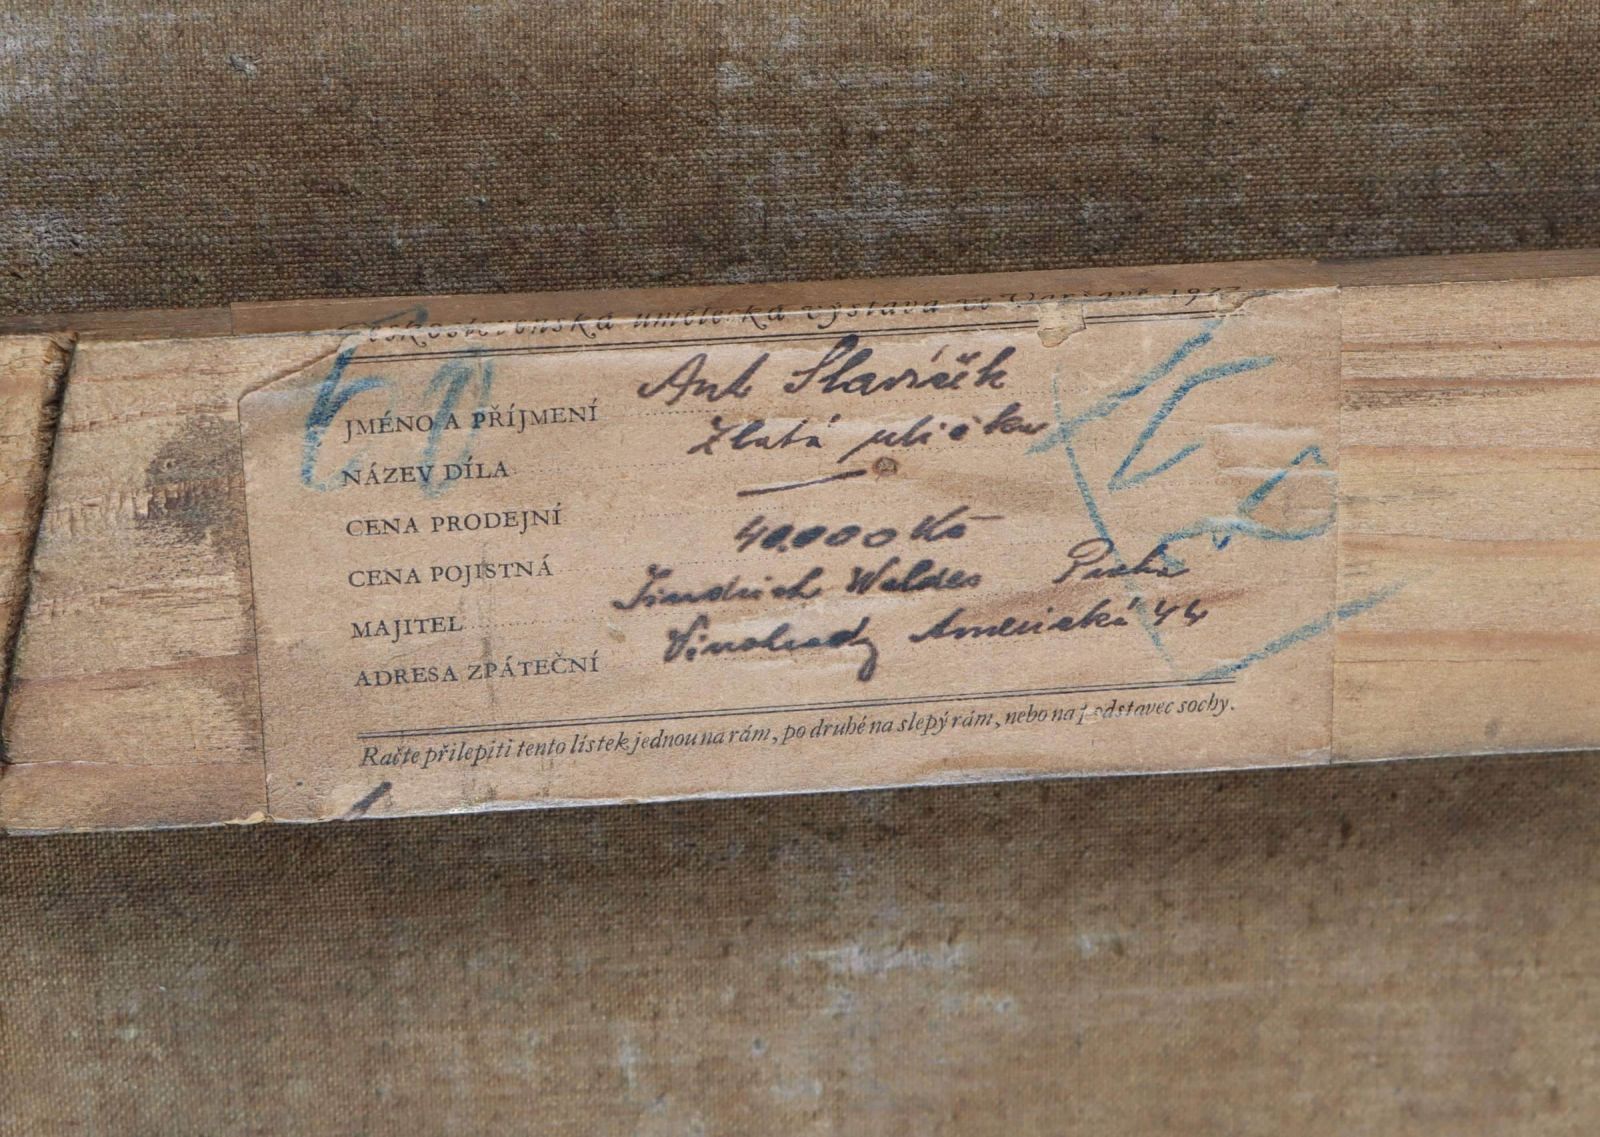 Československá umělecká výstava ve Varšavě 1927
JMÉNO A PŘÍJMENÍ Ant Slavíček
NÁZEV DÍLA Zlatá ulička
CENA PRODEJNÍ —
CENA POJISTNÁ 40.000 Kč
MAJITEL Jindřich Waldes Praha
ADRESA ZPÁTEČNÍ Vinohrady Americká 44
Račte přilepiti tento lístek jednou na rám, po druhé na slepý rám, nebo na podstavec sochy.